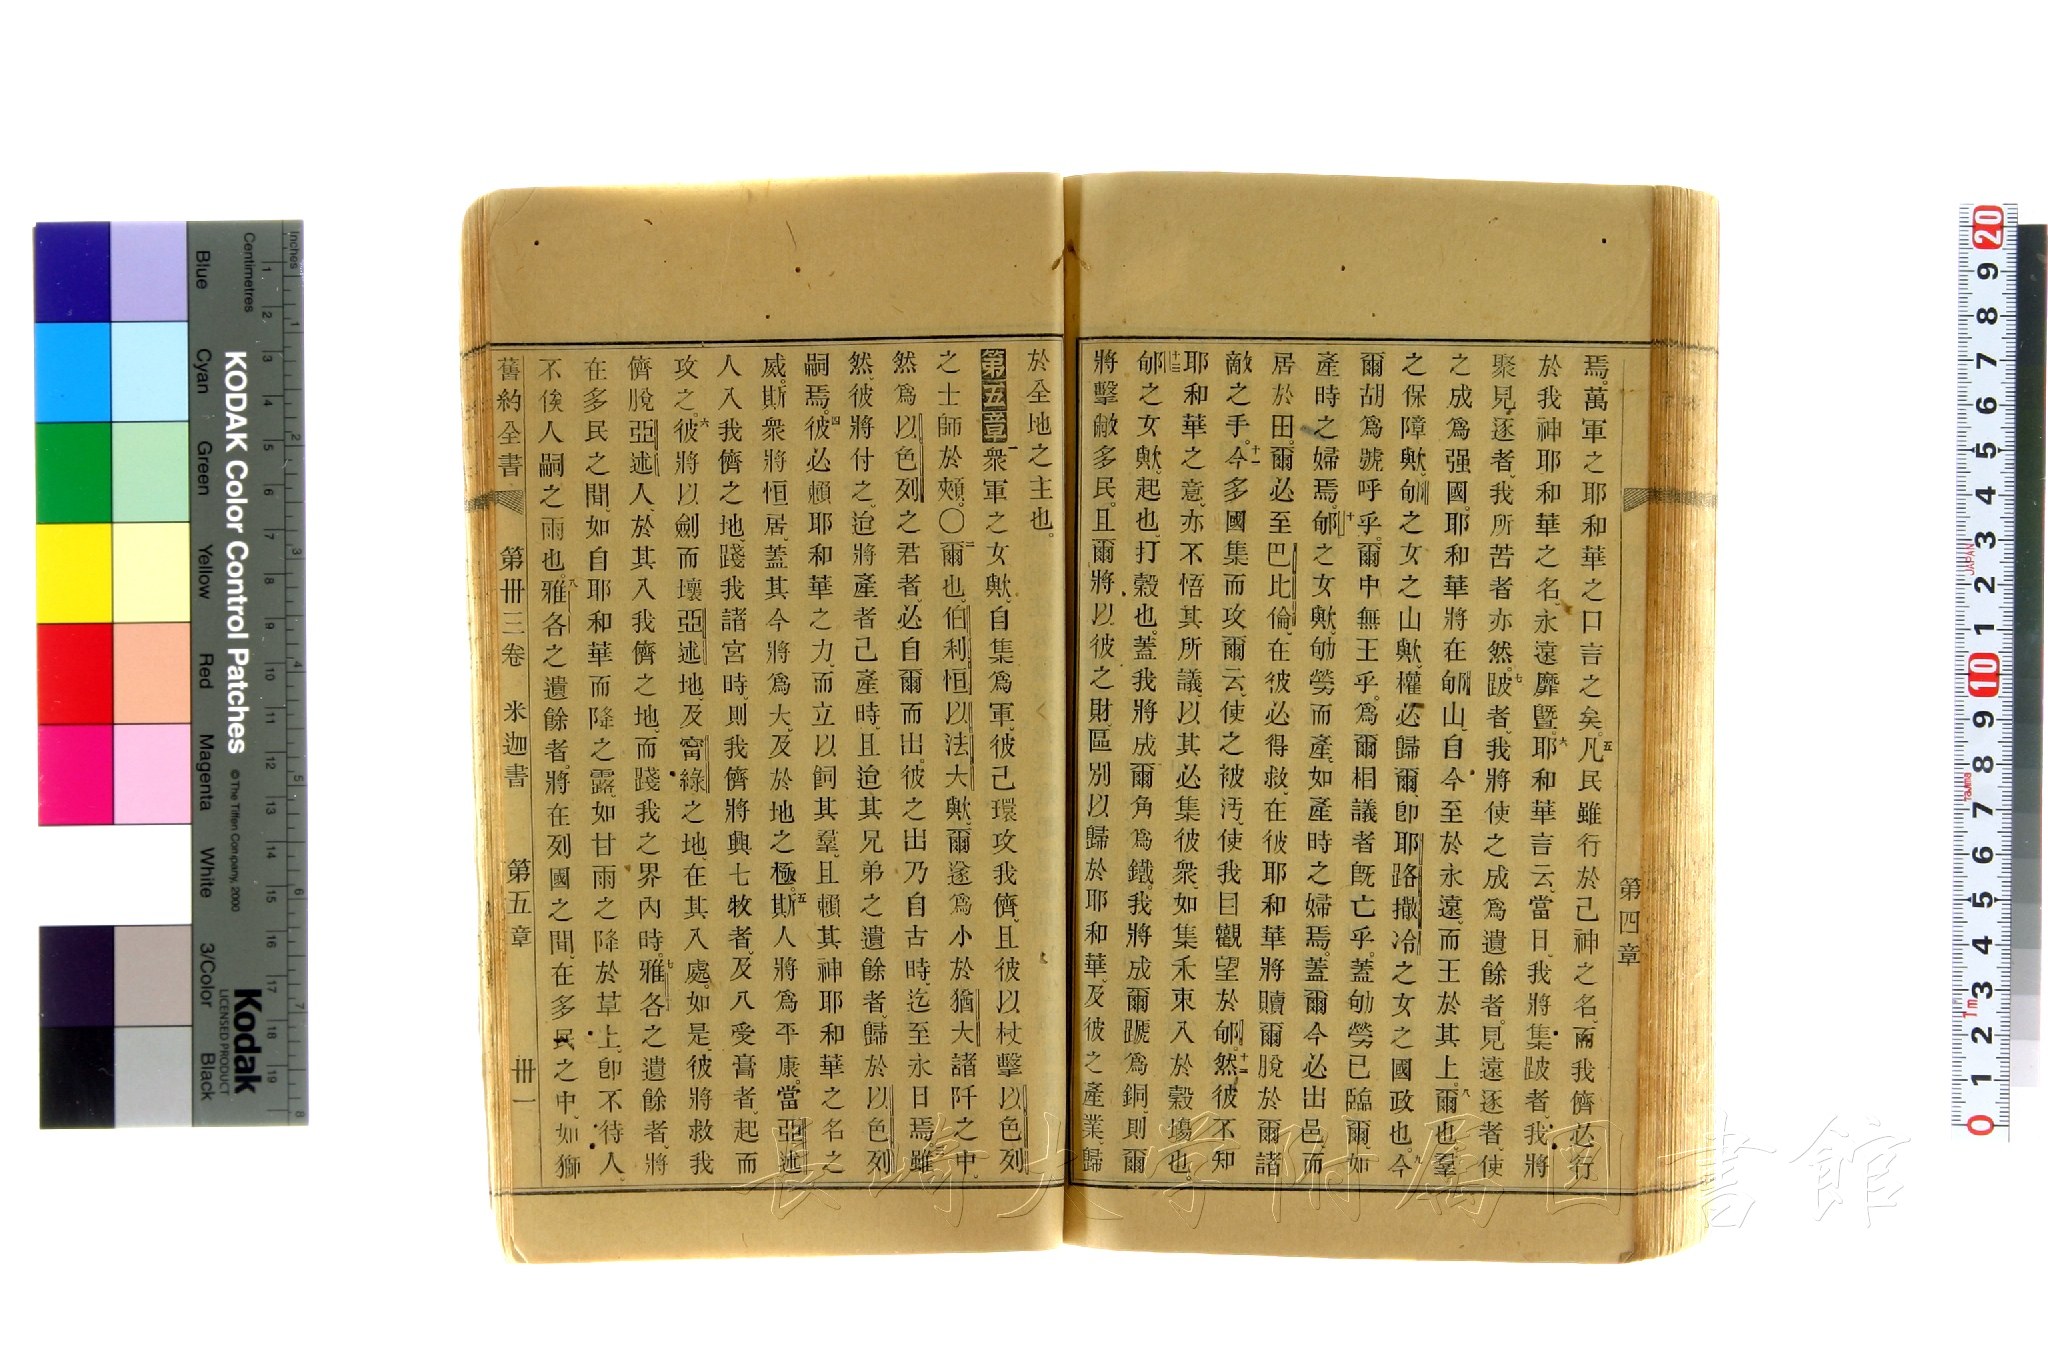 第四章
焉。萬軍之耶和華之口言之矣。五凡民雖行於己神之名、而我儕必行
於我神耶和華之名、永遠靡曁。六耶和華言云、當日、我將集跛者、我將
聚見逐者、我所苦者亦然。七跛者、我將使之成爲遺餘者。見遠逐者、使
之成爲强國。耶和華將在郇山、自今至於永遠、而王於其上。八爾也、羣
之保障歟、郇之女之山歟、權必歸爾、卽耶路撒冷之女之國政也。九今
爾胡爲號呼乎。爾中無王乎。爲爾相議者旣亡乎。蓋劬勞已臨爾、如
產時之婦焉。十郇之女歟、劬勞而產、如產時之婦焉。蓋爾今必出邑、而
居於田。爾必至巴比倫、在彼必得救、在彼耶和華將贖爾脫於爾諸
敵之手。十一今多國集而攻爾云、使之被汚、使我目觀望於郇。十二然彼不知
耶和華之意、亦不悟其所議、以其必集彼衆、如集禾束入於穀塲也。
十三郇之女歟、起也、打穀也。蓋我將成爾角爲鐵。我將成爾蹏爲銅、則爾
將擊敝多民。且爾將以彼之財、區別以歸於耶和華、及彼之產業、歸
於全地之主也。
第五章一衆軍之女歟、自集爲軍、彼已環攻我儕、且彼以杖擊以色列
之士師於頰。〇二爾也、伯利恒以法大歟、爾遂爲小於猶大諸阡之中、
然爲以色列之君者、必自爾而出。彼之出乃自古時、迄至永日焉。三雖
然、彼將付之、迨將產者已產時、且迨其兄弟之遺餘者、歸於以色列
嗣焉。四彼必賴耶和華之力、而立以飼其羣、且賴其神耶和華之名之
威。斯衆將恒居、蓋其今將爲大、及於地之極。五斯人將爲平康。當亞述
人入我儕之地、踐我諸宮時、則我儕將興七牧者、及八受膏者、起而
攻之。六彼將以劍而壞亞述地、及甯綠之地、在其入處。如是、彼將救我
儕脫亞述人、於其入我儕之地、而踐我之界內時。七雅各之遺餘者、將
在多民之間、如自耶和華而降之露、如甘雨之降於草上、卽不待人、
不俟人嗣之雨也。八雅各之遺餘者、將在列國之間、在多民之中、如獅
舊約全書 第卅三卷 米迦書 第五章 卅一
KODAK Color Control Patches
© The Tiffen Company, 2000
Kodak
LICENSED PRODUCT
Inches
Centimetres
Blue
Cyan
Green
Yellow
Red
Magenta
White
3/Color
Black
JAPAN
長崎大学附属図書館